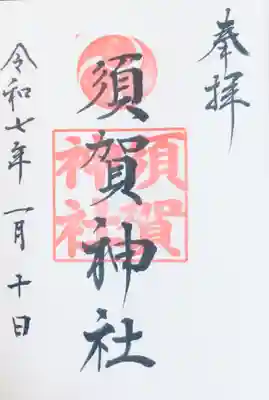 奉拝
須賀神社
須賀
神社
令和七年 一月十日